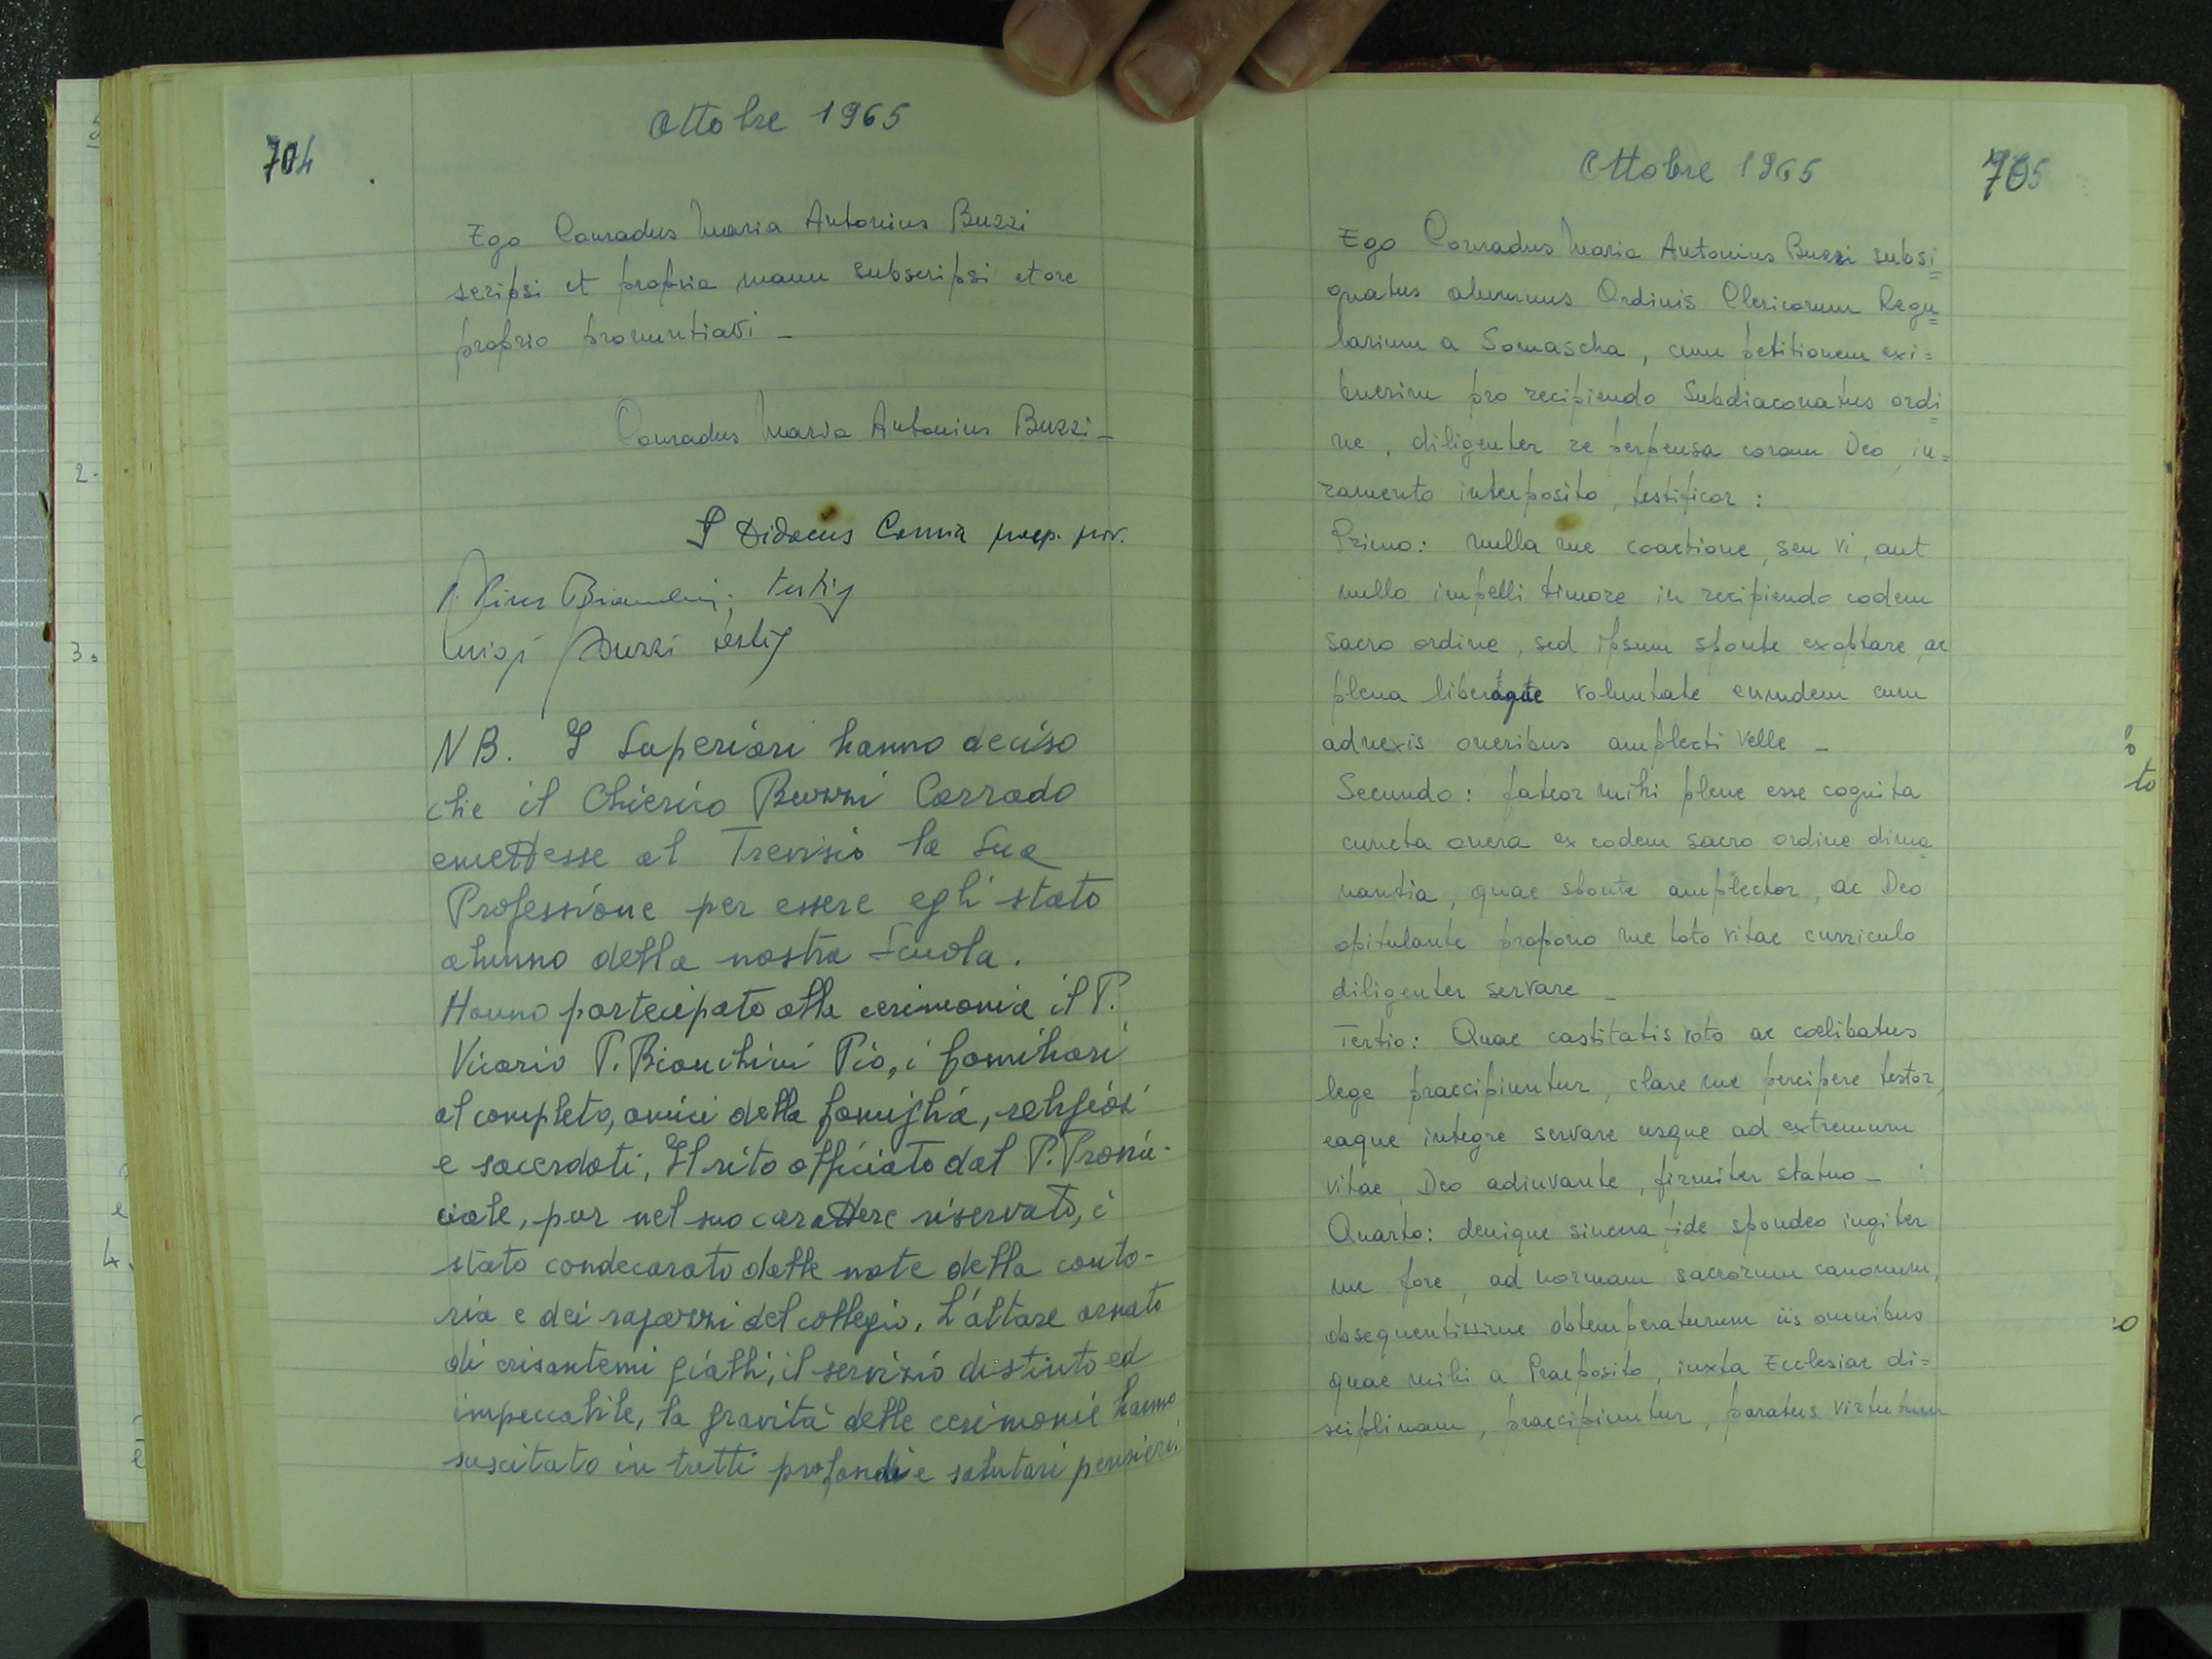 704
Ottobre 1965
Ego Conradus Maria Antonius Buzzi
scripsi et propria manu subscripsi et ore
proprio pronuntiavi -
Conradus Maria Antonius Buzzi -
P Didacus Camia praep. prov.
P. Pius Bianchini, testis
Luigi Buzzi testis
NB. I Superiori hanno deciso
che il Chierico Buzzi Corrado
emettesse al Trevisio la Sua
Professione per essere egli stato
alunno della nostra Scuola.
Hanno partecipato alla cerimonia il P.
Vicario P. Bianchini Pio, i familiari
al completo, amici della famiglia, religiosi
e sacerdoti. Il rito officiato dal P. Provin-
ciale, pur nel suo carattere riservato, è
stato condecorato dalle note della canto-
ria e dei ragazzi del collegio. L'altare ornato
di crisantemi gialli, il servizio distinto ed
impeccabile, la gravità delle cerimonie hanno
suscitato in tutti profondi e salutari pensieri.
Ottobre 1965
705
Ego Conradus Maria Antonius Buzzi subsi=
gnatus alumnus Ordinis Clericorum Regu=
larium a Somascha, cum petitionem exi=
buerim pro recipiendo Subdiaconatus ordi=
ne, diligenter re perpensa coram Deo, iu=
ramento interposito, testificor:
Primo: nulla me coactione, seu vi, aut
nullo impelli timore in recipiendo eodem
sacro ordine, sed ipsum sponte exoptare, ac
plena liberaque voluntate eumdem cum
adnexis oneribus amplecti velle -
Secundo: fateor mihi plene esse cognita
cuncta onera ex eodem sacro ordine dima
nantia, quae sponte amplector, ac Deo
opitulante propono me toto vitae curriculo
diligenter servare -
Tertio: Quae castitatis voto ac coelibatus
lege praecipiuntur, clare me percipere testor,
eaque integre servare usque ad extremum
vitae, Deo adiuvante, firmiter statuo -
Quarto: denique sincera fide spondeo iugiter
me fore, ad normam sacrorum canonum,
obsequentissime obtemperaturum iis omnibus
quae mihi a Praeposito, iuxta Ecclesiae di=
sciplinam, praecipiuntur, paratus virtutum